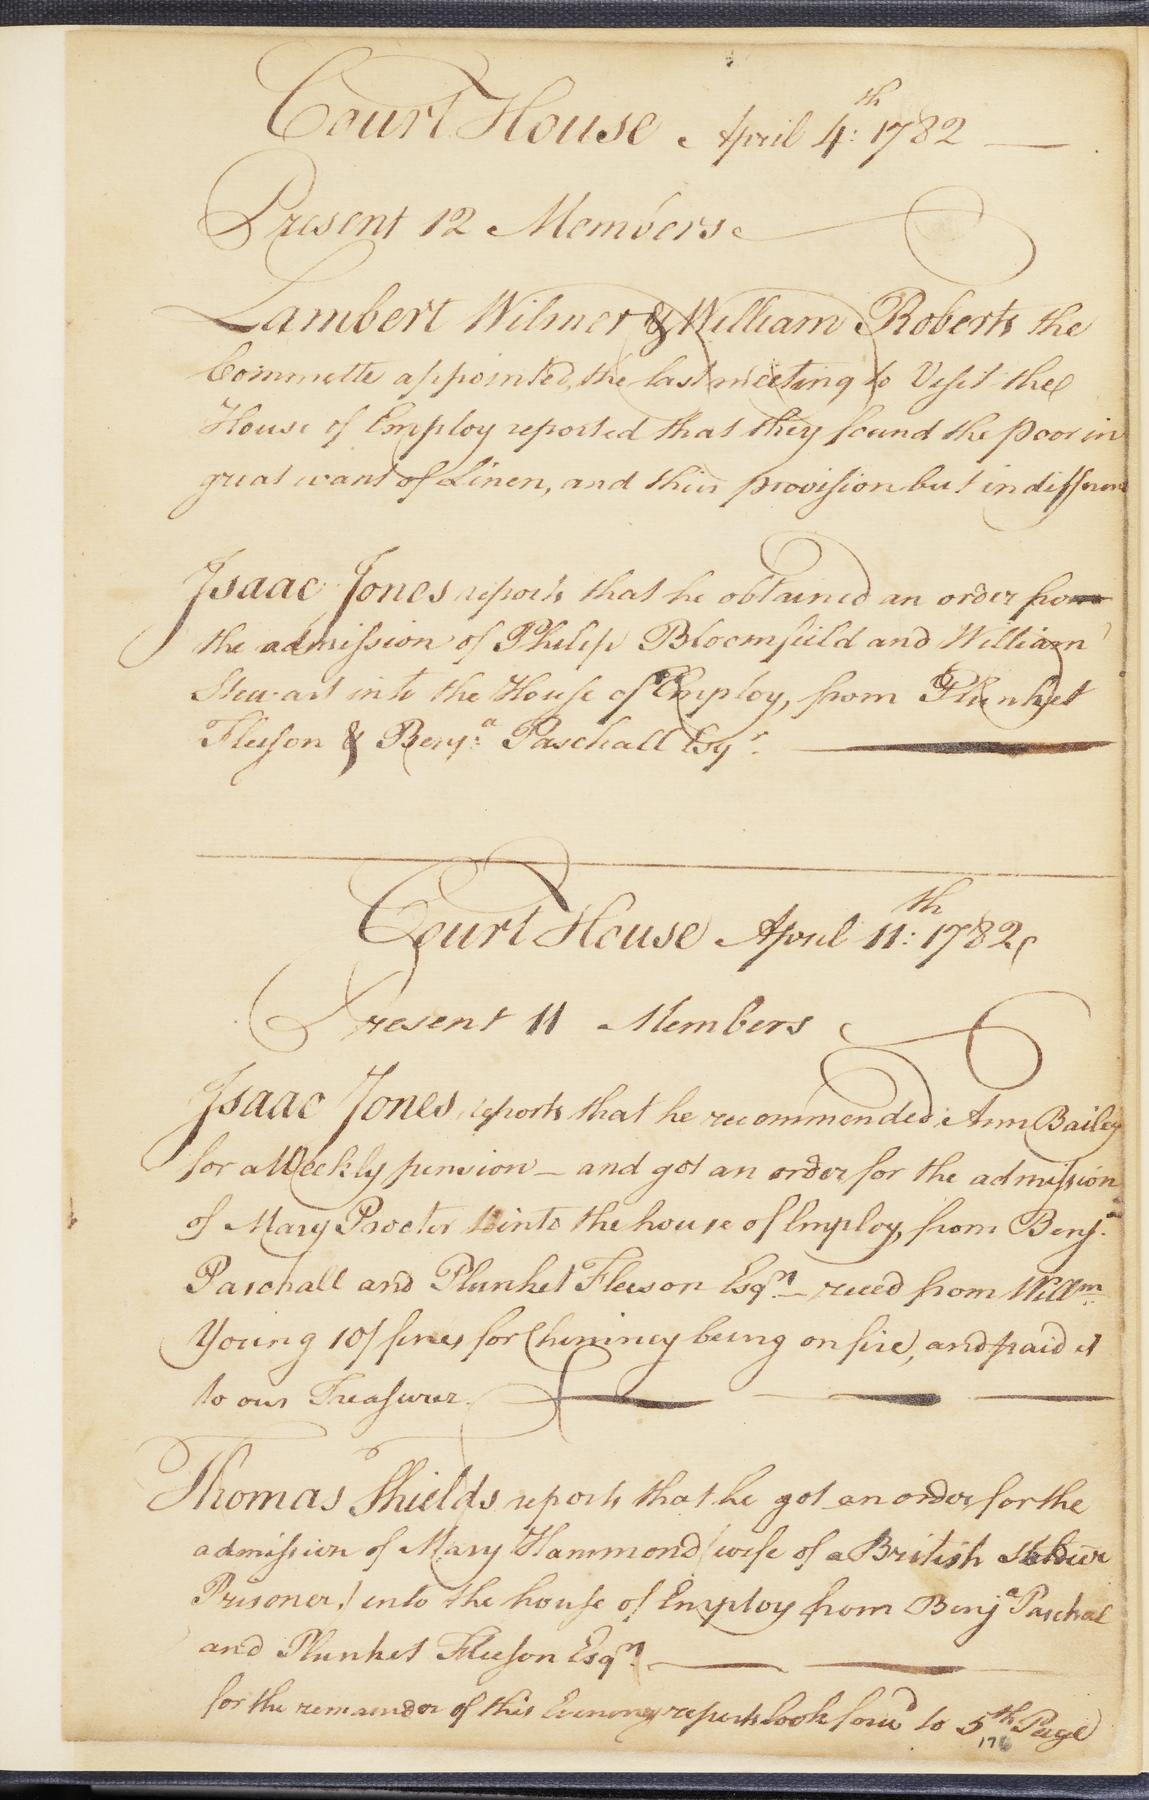 Court House April 4:th 1782
Present 12 Members
Lambert Wilmer & William Roberts the
Committe appointed, the last meeting to Visit the
House of Employ reported that they found the Poor in
great want of Linen, and their provision but indifferent
Isaac Jones reports that he obtained an order from
the admission of Philip Bloomfield and William
Stewart into the House of Employ, from Plunket
Fleeson & Benj:a Paschall Esqr.
Court House April 11:th 1782
Present 11 Members
Isaac Jones reports that he recommended Ann Bailey
for a Weekly pension – and got an order for the admission
of Mary Procter into the house of Employ, from Benj:a
Paschall and Plunket Fleeson Esqrs – recd from Willm
Young 10/ fines for Chimney being on fire, and paid it
to our Treasurer.
Thomas Shields reports that he got an order for the
admission of Mary Hammond (wife of a British Soldier
Prisoner) into the house of Employ from Benja Paschal
and Plunket Fleeson Esqrs
for the remainder of this Evening reports look forwd to 5th Page
176